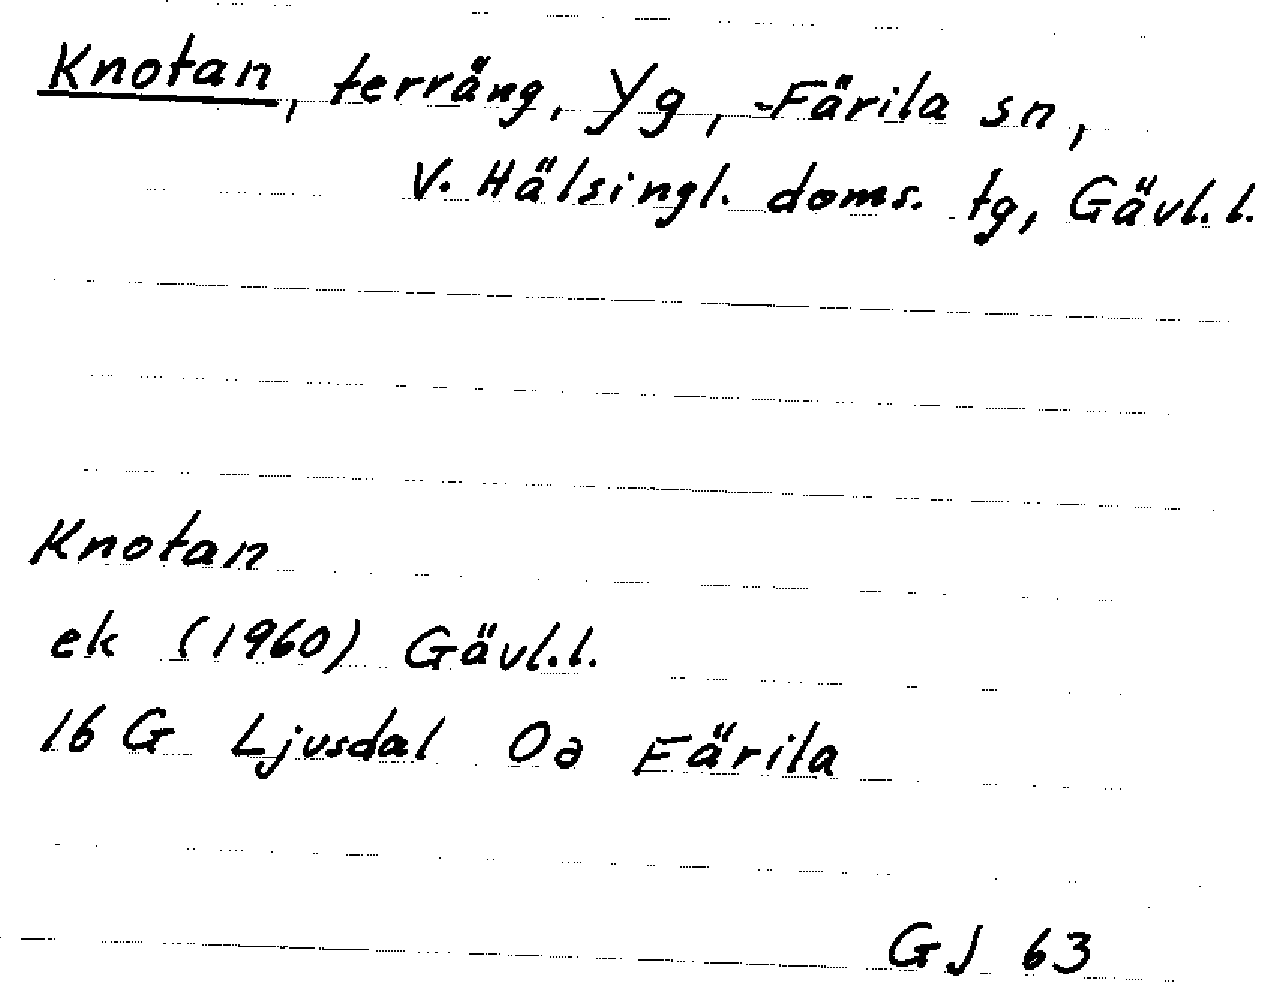 Knotan, terräng, Yg, Färila sn,
V. Hälsingl. doms. tg, Gävl. l.
Knotan
ek (1960) Gävl. l.
16 G Ljusdal 0a Färila
GJ 63